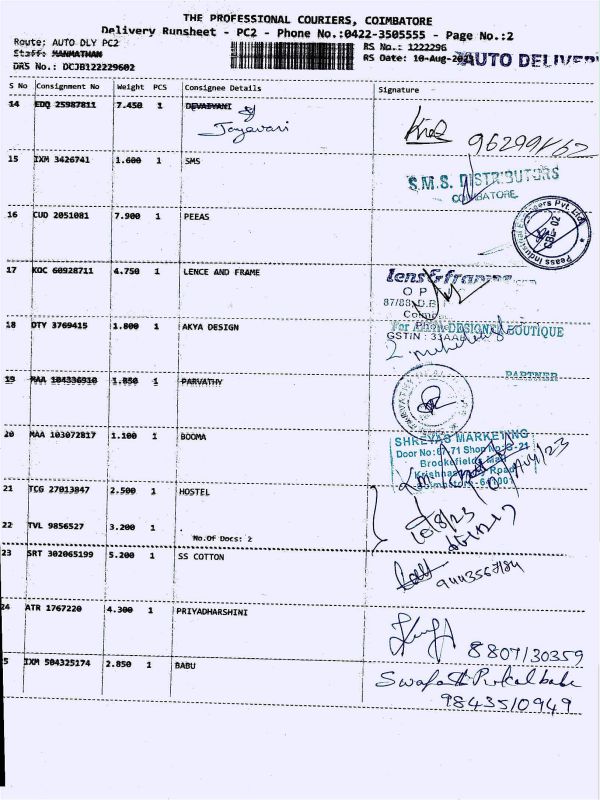 THE PROFESSIONAL COURIERS, COIMBATORE
Delivery Runsheet - PC2 - Phone No.:0422-3505555 - Page No.:2
Route: AUTO DLY PC2
RS No.: 1222296
Staff: MANMATHAN
RS Date: 10-Aug-
AUTO DELIVERY
DRS No.: DCJB122229602
S No Consignment No Weight PCS Consignee Details Signature
14 EDQ 25987811 7.450 1 DEVADYANI
15 IXM 3426741 1.600 1 SMS
S.M.S. DISTRIBUTORS
COIMBATORE
16 CUD 2051081 7.900 1 PEEAS
17 KOC 60928711 4.750 1 LENCE AND FRAME
lens&frames
O P
87/88,D.B
GSTIN : 33AA
18 DTY 3769415 1.800 1 AKYA DESIGN
DESIGNER BOUTIQUE
PARTNER
19 MAA 104336910 1.050 1 PARVATHY
20 MAA 103072817 1.100 1 BOOMA
SHREYAS MARKETING
Door No:67-71 Shop No:G-21
Brookefields Mall
Krishnasamy Road
Coimbatore-641001
21 TCG 27013847 2.500 1 HOSTEL
10/8/23
22 TVL 9856527 3.200 1
No.Of Docs: 2
23 SRT 302065199 5.200 1 SS COTTON
24 ATR 1767220 4.300 1 PRIYADHARSHINI
8807130359
5 IXM 504325174 2.850 1 BABU
9843510949